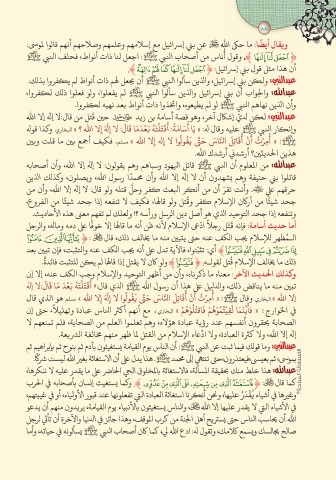 ٨٨
ويقال أيضًا: ما حكى الله ﷻ عن بني إسرائيل مع إسلامهم وعلمهم وصلاحهم أنهم قالوا لموسى:
﴿ اجْعَل لَّنَا إِلَٰهًا ﴾، وقول أناس من أصحاب النبي ﷺ: اجعل لنا ذات أنواط، فحلف النبي ﷺ
أن هذا مثل قول بني إسرائيل: ﴿ اجْعَل لَّنَا إِلَٰهًا كَمَا لَهُمْ آلِهَةٌ ﴾.
عبدالنبي: ولكن بني إسرائيل، والذين سألوا النبي ﷺ أن يجعل لهم ذات أنواط لم يكفروا بذلك.
عبدالله: والجواب أن بني إسرائيل والذين سألوا النبي ﷺ لم يفعلوا، ولو فعلوا ذلك لكفروا،
وأن الذين نهاهم النبي ﷺ لو لم يطيعوه، واتخذوا ذات أنواط بعد نهيه لكفروا.
عبدالنبي: لكن لدي إشكال آخر، وهو قصة أسامة بن زيد حين قتل من قال: لا إله إلا الله
وإنكار النبي ﷺ عليه وقال له: « يَا أُسَامَةُ، أَقَتَلْتَهُ بَعْدَمَا قَالَ: لا إِلَهَ إِلا اللهُ ؟ » البخاري وكذا قوله
ﷺ: « أُمِرْتُ أَنْ أُقَاتِلَ النَّاسَ حَتَّى يَقُولُوا لَا إِلَهَ إِلا الله » مسلم. فكيف أجمع بين ما قلت وبين
هذين الحديثين؟ أرشدني أرشدك الله.
عبدالله: من المعلوم أن النبي ﷺ قاتل اليهود وسباهم وهم يقولون: لا إله إلا الله، وأن أصحابه
قاتلوا بني حنيفة وهم يشهدون أن لا إله إلا الله وأن محمدًا رسول الله، ويصلون، وكذلك الذين
حرقهم علي. وأنت تقر أن من أنكر البعث كفر وحل قتله ولو قال: لا إله إلا الله، وأن من
جحد شيئًا من أركان الإسلام كفر وقُتل ولو قالها، فكيف لا تنفعه إذا جحد شيئًا من الفروع،
وتنفعه إذا جحد التوحيد الذي هو أصل دين الرسل ورأسه ؟! ولعلك لم تفهم معنى هذه الأحاديث.
أما حديث أسامة: فإنه قتل رجلاً ادّعى الإسلام لأنه ظن أنه ما قالها إلا خوفًا على دمه وماله، والرجل
المظهر للإسلام يجب الكف عنه حتى يتبين منه ما يخالف ذلك، قال ﷻ: ﴿ يَا أَيُّهَا الَّذِينَ آمَنُوا
إِذَا ضَرَبْتُمْ فِي سَبِيلِ اللَّهِ فَتَبَيَّنُوا ﴾ أي: تثبّتوا، فالآية تدل على أنه يجب الكف عنه والتثبت، فإن تبين بعد
ذلك ما يخالف الإسلام قُتل لقوله: ﴿ فَتَبَيَّنُوا ﴾ ولو كان لا يقتل إذا قالها لم يكن للتثبت فائدة.
وكذلك الحديث الآخر: معناه ما ذكرناه، وأن من أظهر التوحيد والإسلام وجب الكف عنه، إلا إن
تبين منه ما يناقض ذلك، والدليل على هذا أن رسول الله ﷺ الذي قال: « أَقَتَلْتَهُ بَعْدَ مَا قَالَ: لا إِلَهَ
إِلا الله » البخاري وقال ﷺ: « أُمِرْتُ أَنْ أُقَاتِلَ النَّاسَ حَتَّى يَقُولُوا لَا إِلَهَ إِلا الله » مسلم هو الذي قال
في الخوارج : « فَأَيْنَمَا لَقِيتُمُوهُمْ فَاقْتُلُوهُمْ » البخاري، مع أنهم أكثر الناس عبادة وتهليلًا، حتى إن
الصحابة يحقرون أنفسهم عند رؤية عبادة هؤلاء، وهم تعلموا العلم من الصحابة، فلم تمنعهم لا
إله إلا الله، ولا كثرة العبادة، ولا ادعاء الإسلام من القتل لما ظهر منهم مخالفة الشريعة.
عبدالنبي: وما قولك فيما ثبت عن النبي ﷺ: أن الناس يوم القيامة يستغيثون بآدم ثم بنوح ثم بإبراهيم ثم
بموسى، ثم بعيسى، فيعتذرون، حتى تنتهي إلى محمد ﷺ. هذا يدل على أن الاستغاثة بغير الله ليست شركًا.
عبدالله: هذا خلط منك بحقيقة المسألة، فالاستغاثة بالمخلوق الحي الحاضر على ما يقدر عليه لا ننكرها،
كما قال ﷻ: ﴿ فَاسْتَغَاثَهُ الَّذِي مِن شِيعَتِهِ عَلَى الَّذِي مِنْ عَدُوِّهِ ﴾، وكما يستغيث إنسان بأصحابه في الحرب
وغيرها في أشياء يقدر عليها، ونحن أنكرنا استغاثة العبادة التي تفعلونها عند قبور الأولياء، أو في غيبتهم،
في الأشياء التي لا يقدر عليها إلا الله ﷻ، والناس يستغيثون بالأنبياء يوم القيامة، يريدون منهم أن يدعوا
الله أن يحاسب الناس حتى يستريح أهل الجنة من كرب الموقف، وهذا جائز في الدنيا والآخرة أن تأتي لرجل
صالح يجالسك ويسمع كلامك، وتقول له: ادع الله لي، كما كان أصحاب النبي ﷺ يسألونه في حياته، وأما